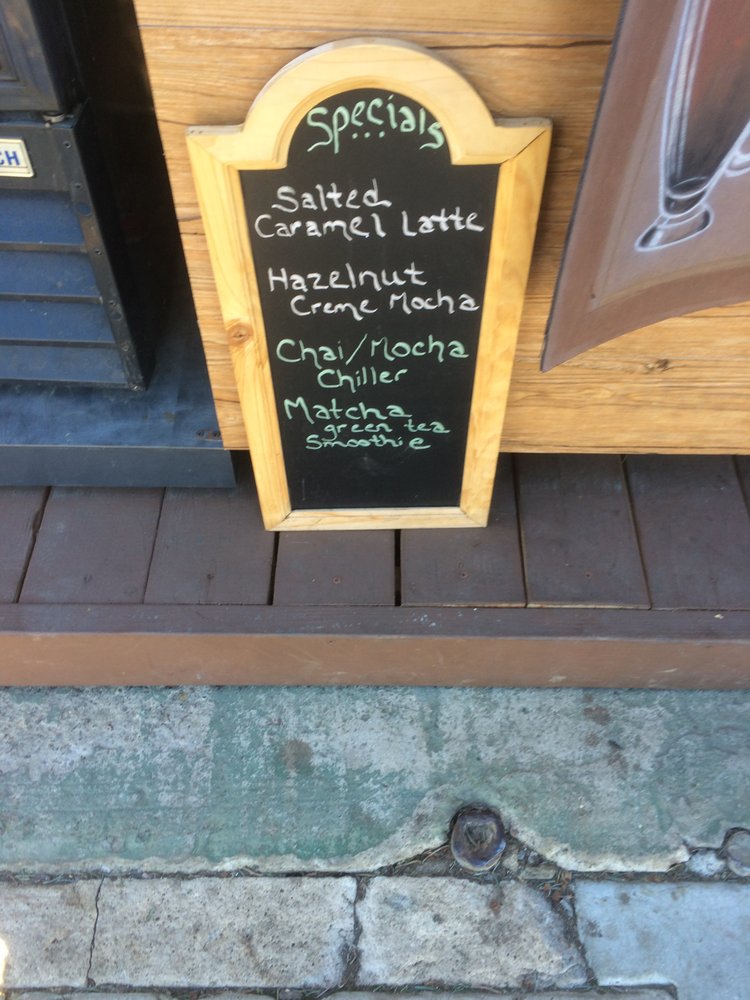 CH
Specials
Salted
Caramel Latte
Hazelnut
Creme Mocha
Chai/Mocha
Chiller
Matcha
green tea
Smoothie